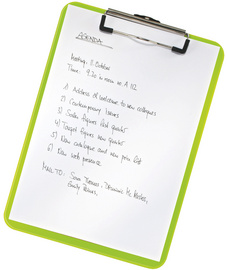 AGENDA
Meeting: 8. October
Time: 9:30 in room no A 112
1) Address of welcome to new colleagues
2) Contemporary Issues
3) Sales figures last quarter
4) Target figures new quarter
5) New catalogue and new price list
6) New web presence
MAIL TO: Sam Thomas, Desmond Mc
Emily